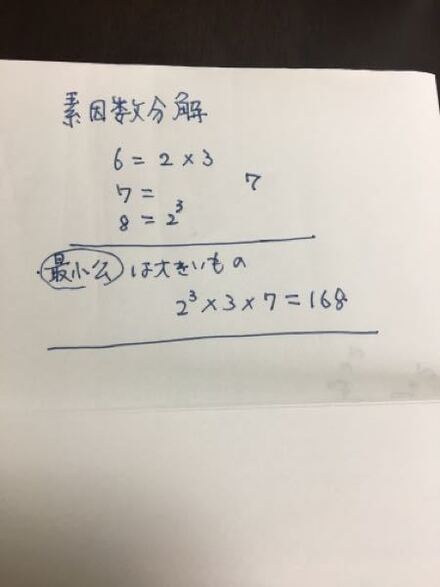 素因数分解
6 = 2 × 3
7 = 7
8 = 2³
・最小公 は大きいもの
2³ × 3 × 7 = 168